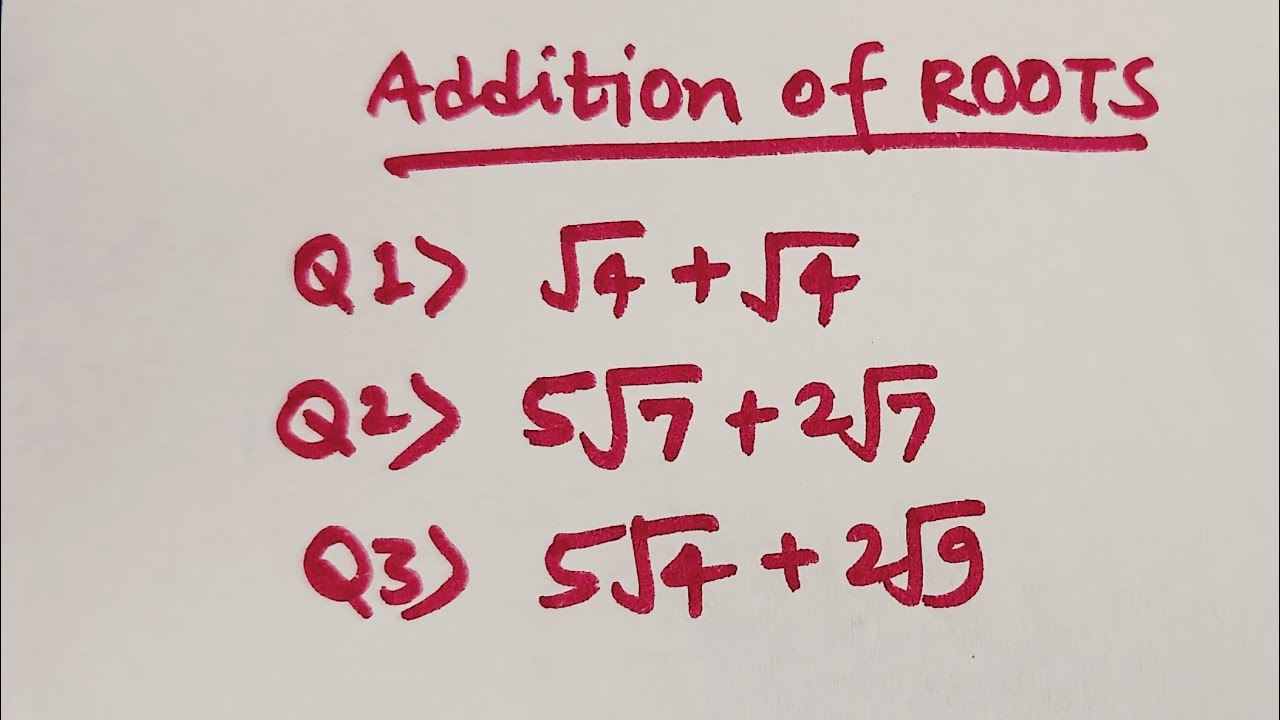 Addition of ROOTS
Q1> √4 + √4
Q2> 5√7 + 2√7
Q3) 5√4 + 2√9